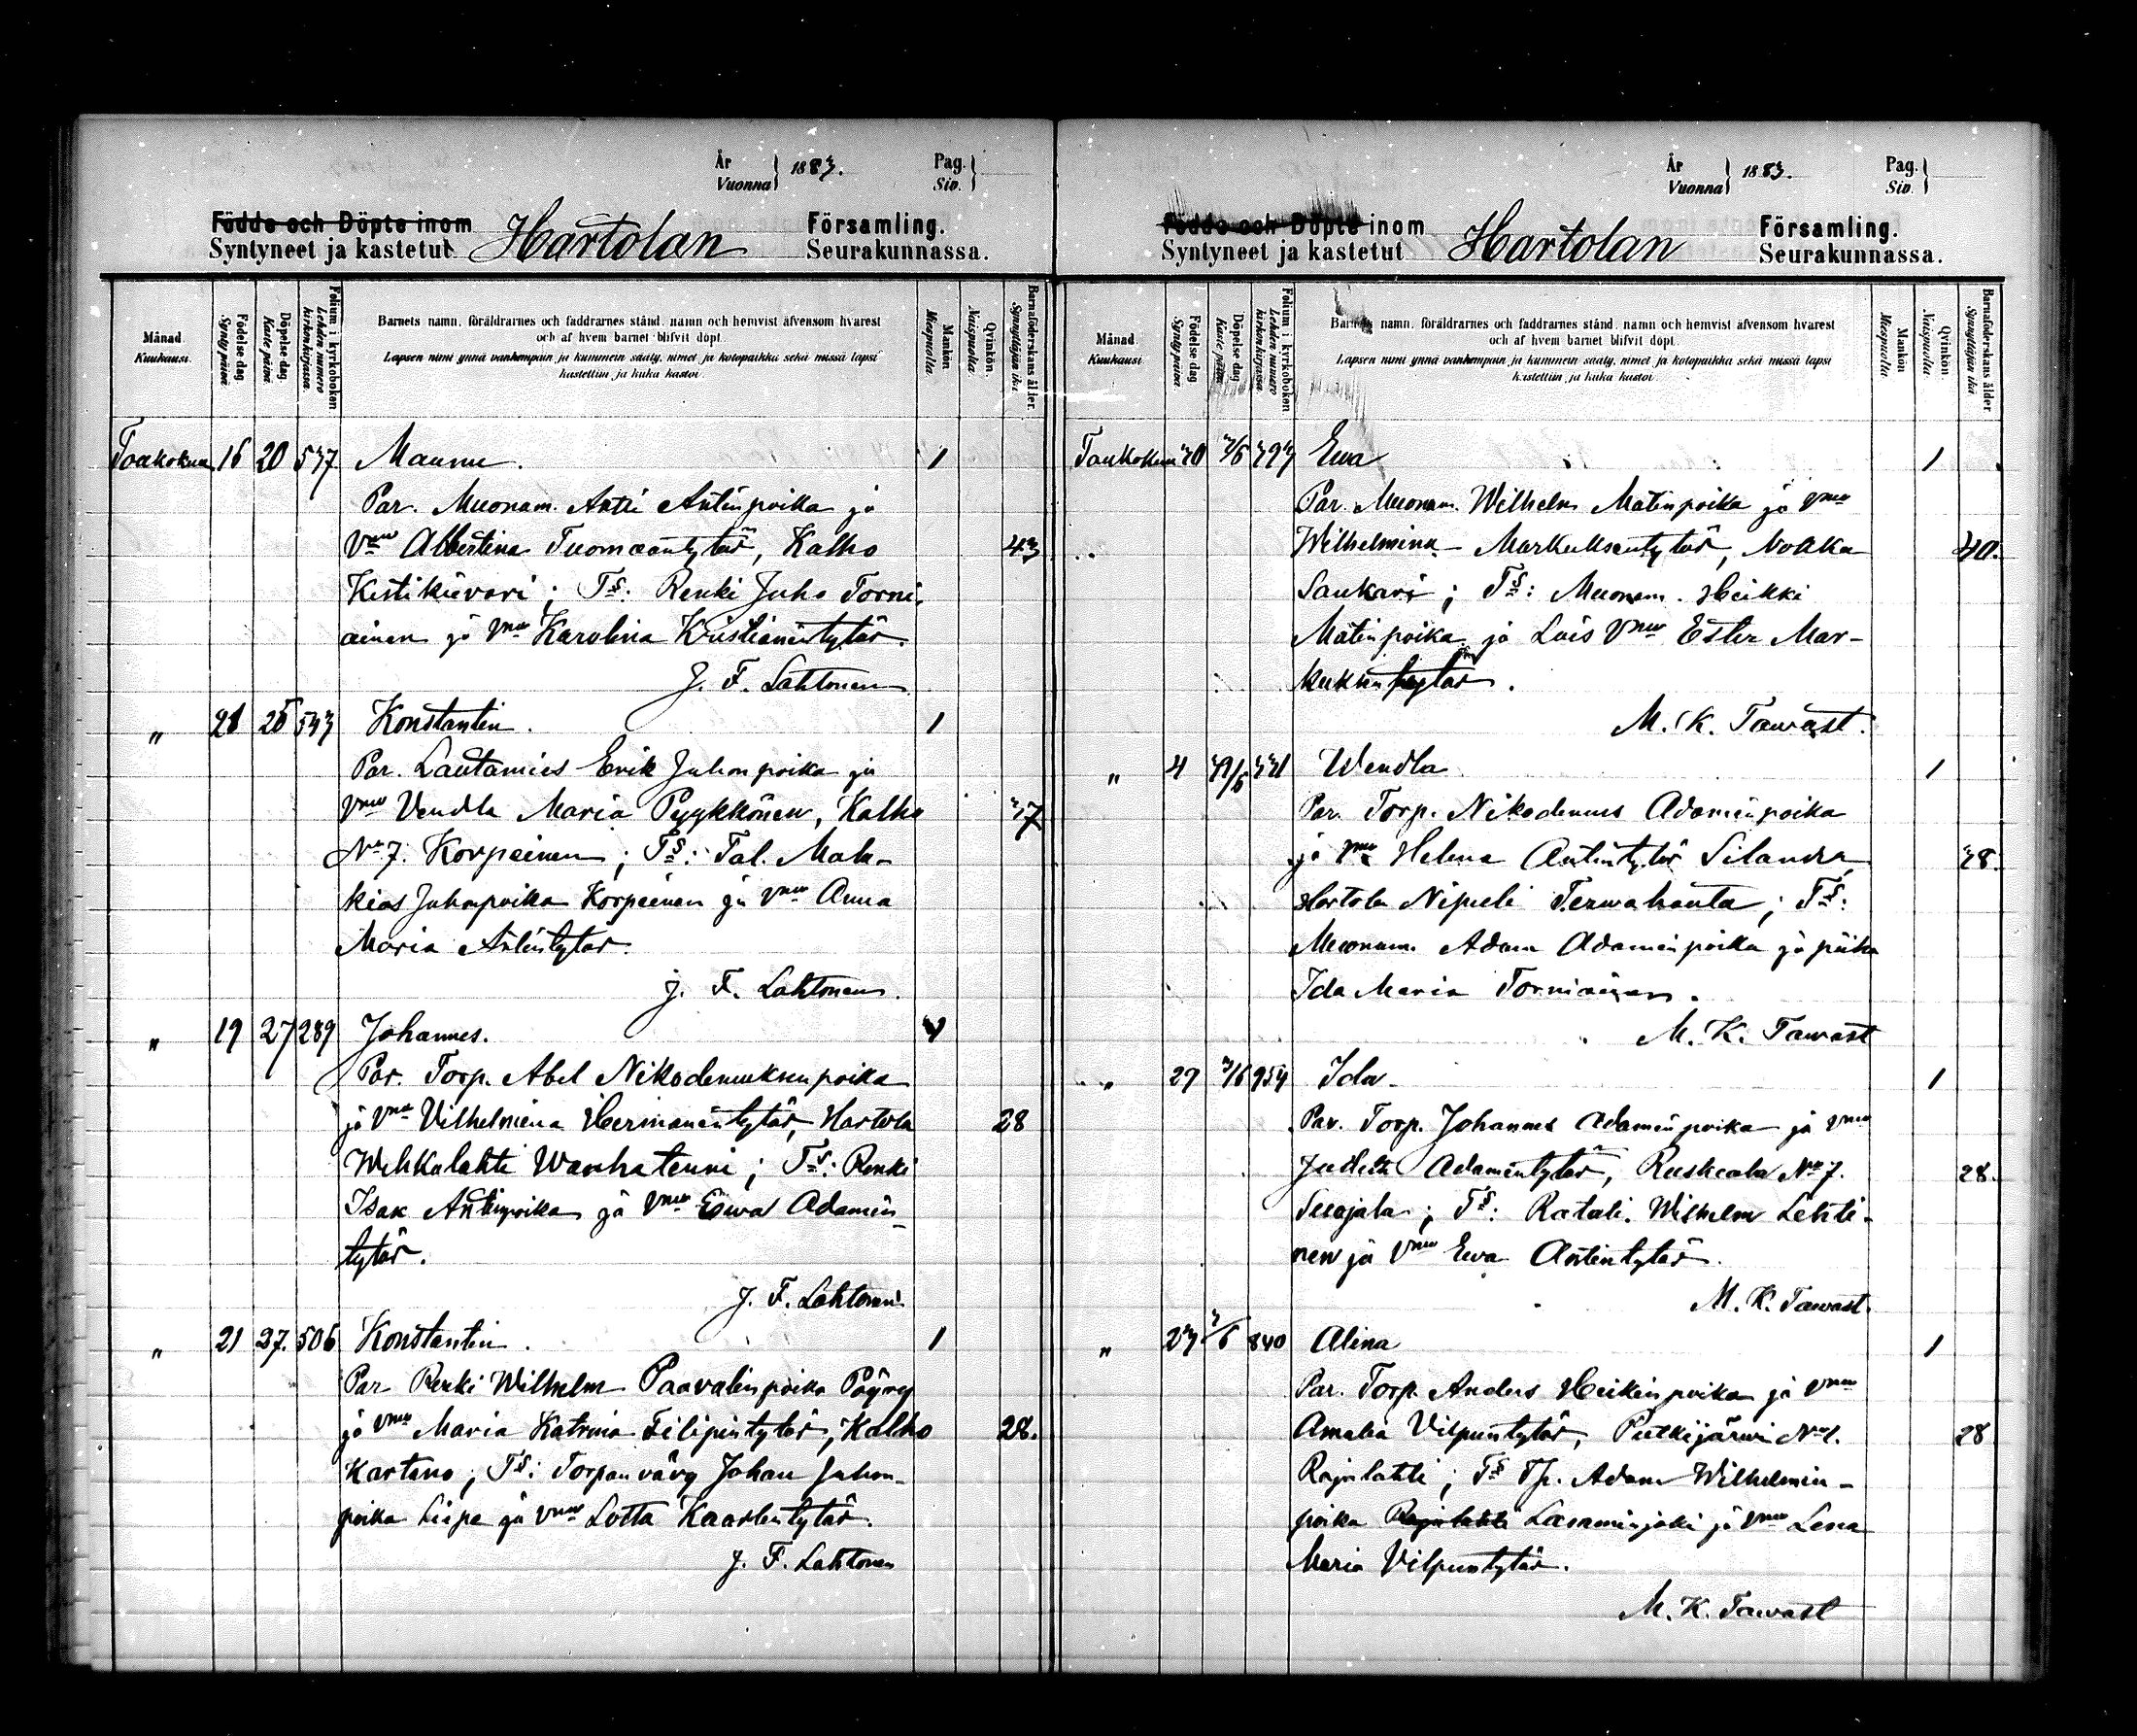 År
Vuonna } 1883.
Pag.
Siv. }
Födde och Döpte inom
Syntyneet ja kastetut Hartolan
Församling.
Seurakunnassa.
Månad.
Kuukausi.
Födelse dag
Synty päivä.
Döpelse dag.
Kaste päivä
Folium i kyrkoboken
Lehden numero
kirkonkirjassa.
Barnets namn, föräldrarnes och faddrarnes stånd, namn och hemvist äfvensom hvarest
och af hvem barnet blifvit döpt.
Lapsen nimi ynnä vanhempain ja kummein sääty, nimet ja kotopaikka sekä missä lapsi
kastettiin ja kuka kastoi.
Mankön
Miespuolia.
Qvinkön.
Naispuolia.
Barnaföderskans ålder.
Synnyttäjän ikä
Toukokuu 16 20 547 Maunu. 1
Par. Muonam. Antti Antinpoika ja
Vmo Albertina Tuomaantytär, Kalho 43
Kestikievari; Ts: Renki Juho Torni-
ainen ja Vmo Karolina Kristianintytär.
J. F. Lahtonen
" 543 Konstantin. 1
Par. Lautamies Erik Juhonpoika ja
Vmo Vendla Maria Pyykkönen, Kalho
No 7. Korpeinen; Ts: Tal. Mala-
kias Juhonpoika Korpeinen ja Vmo Anna
Maria Antintytär.
J. F. Lahtonen.
" 19 27 289 Johannes.
Par. Torp. Abel Nikodemuksenpoika
ja Vmo Vilhelmina Hermanintytär, Hartola 28
Wehkalahti Wanhatenni; Ts: Renki
Isak Antinpoika ja Vmo Ewa Adamin-
tytär.
J. F. Lahtonen
" 21 27. 506 Konstantin. 1
Par Renki Wilhelm Paavalinpoika Pöyry
ja Vmo Maria Katrina Filipintytär, Kalho 28.
Kartano; Ts: Torpanvävy Johan Juhon-
poika Liipa ja Vmo Lotta Kaarlentytär.
J. F. Lahtonen
År
Vuonna } 1883.
Pag.
Siv. }
Födde och Döpte inom
Syntyneet ja kastetut Hartolan
Församling.
Seurakunnassa.
Månad.
Kuukausi
Födelse dag
Synty päivä.
Döpelse dag
Kaste päivä.
Folium i kyrkoboken
Lehden numero
kirkonkirjassa.
Barnets namn, föräldrarnes och faddrarnes stånd, namn och hemvist äfvensom hvarest
och af hvem barnet blifvit döpt.
Lapsen nimi ynnä vanhempain ja kummein sääty, nimet ja kotopaikka sekä missä lapsi
kastettiin ja kuka kastoi.
Mankön
Miespuolia
Qvinkön.
Naispuolia.
Barnaföderskans ålder.
Synnyttäjän ikä
Toukokuu Ewa 1
Par. Muonam. Wilhelm Matinpoika ja Vmo
Wilhelmina Markuksentytär, Nokka 40.
Saukari; Ts: Muonam. Heikki
Matinpoika ja Lois Vmo Ester Mar-
kuksentytär.
M. K. Tawast.
" 4 Wendla 1
Par. Torp. Nikodemus Adaminpoika
ja Vmo Helena Antintytär Silander
Hartola Nipuli Terwahauta; Ts:
Muonam. Adam Adaminpoika ja piika
Ida Maria Torniainen.
M. K. Tawast
" 27 Ida 1
Par. Torp. Johannes Adaminpoika ja Vmo
Judith Adamintytär, Ruskeala No 7. 28.
Suojala; Ts: Ratali. Wilhelm Lehti-
nen ja Vmo Ewa Antintytär.
M. K. Tawast.
" 840 Alina 1
Par. Torp. Anders Heikinpoika ja Vmo
Amalia Vilpuntytär, Putkijärwi No 1. 28
Rajalahti; Ts Tp. Adam Wilhelmin-
poika Rajalahti ja Vmo Lena
Maria Vilpuntytär.
M. K. Tawast